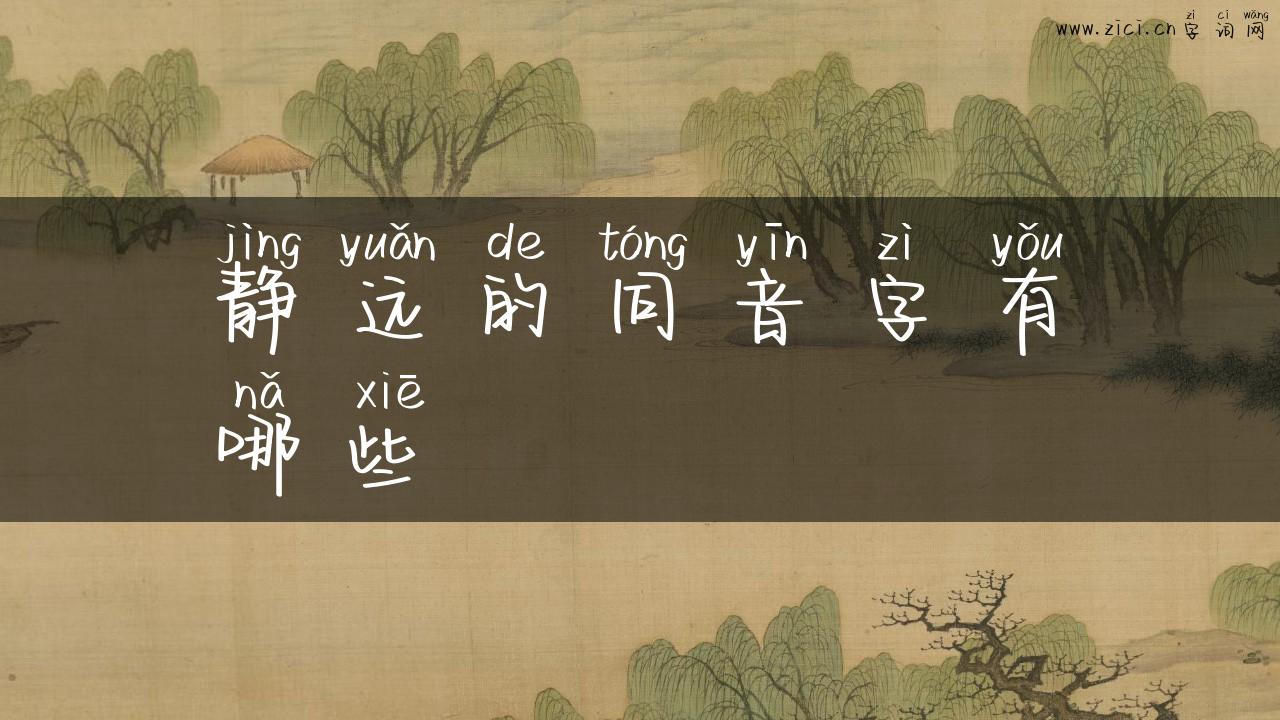 zì cí wǎng
www.zici.cn字词网
jìng yuǎn de tóng yīn zì yǒu
静远的同音字有
nǎ xiē
哪些